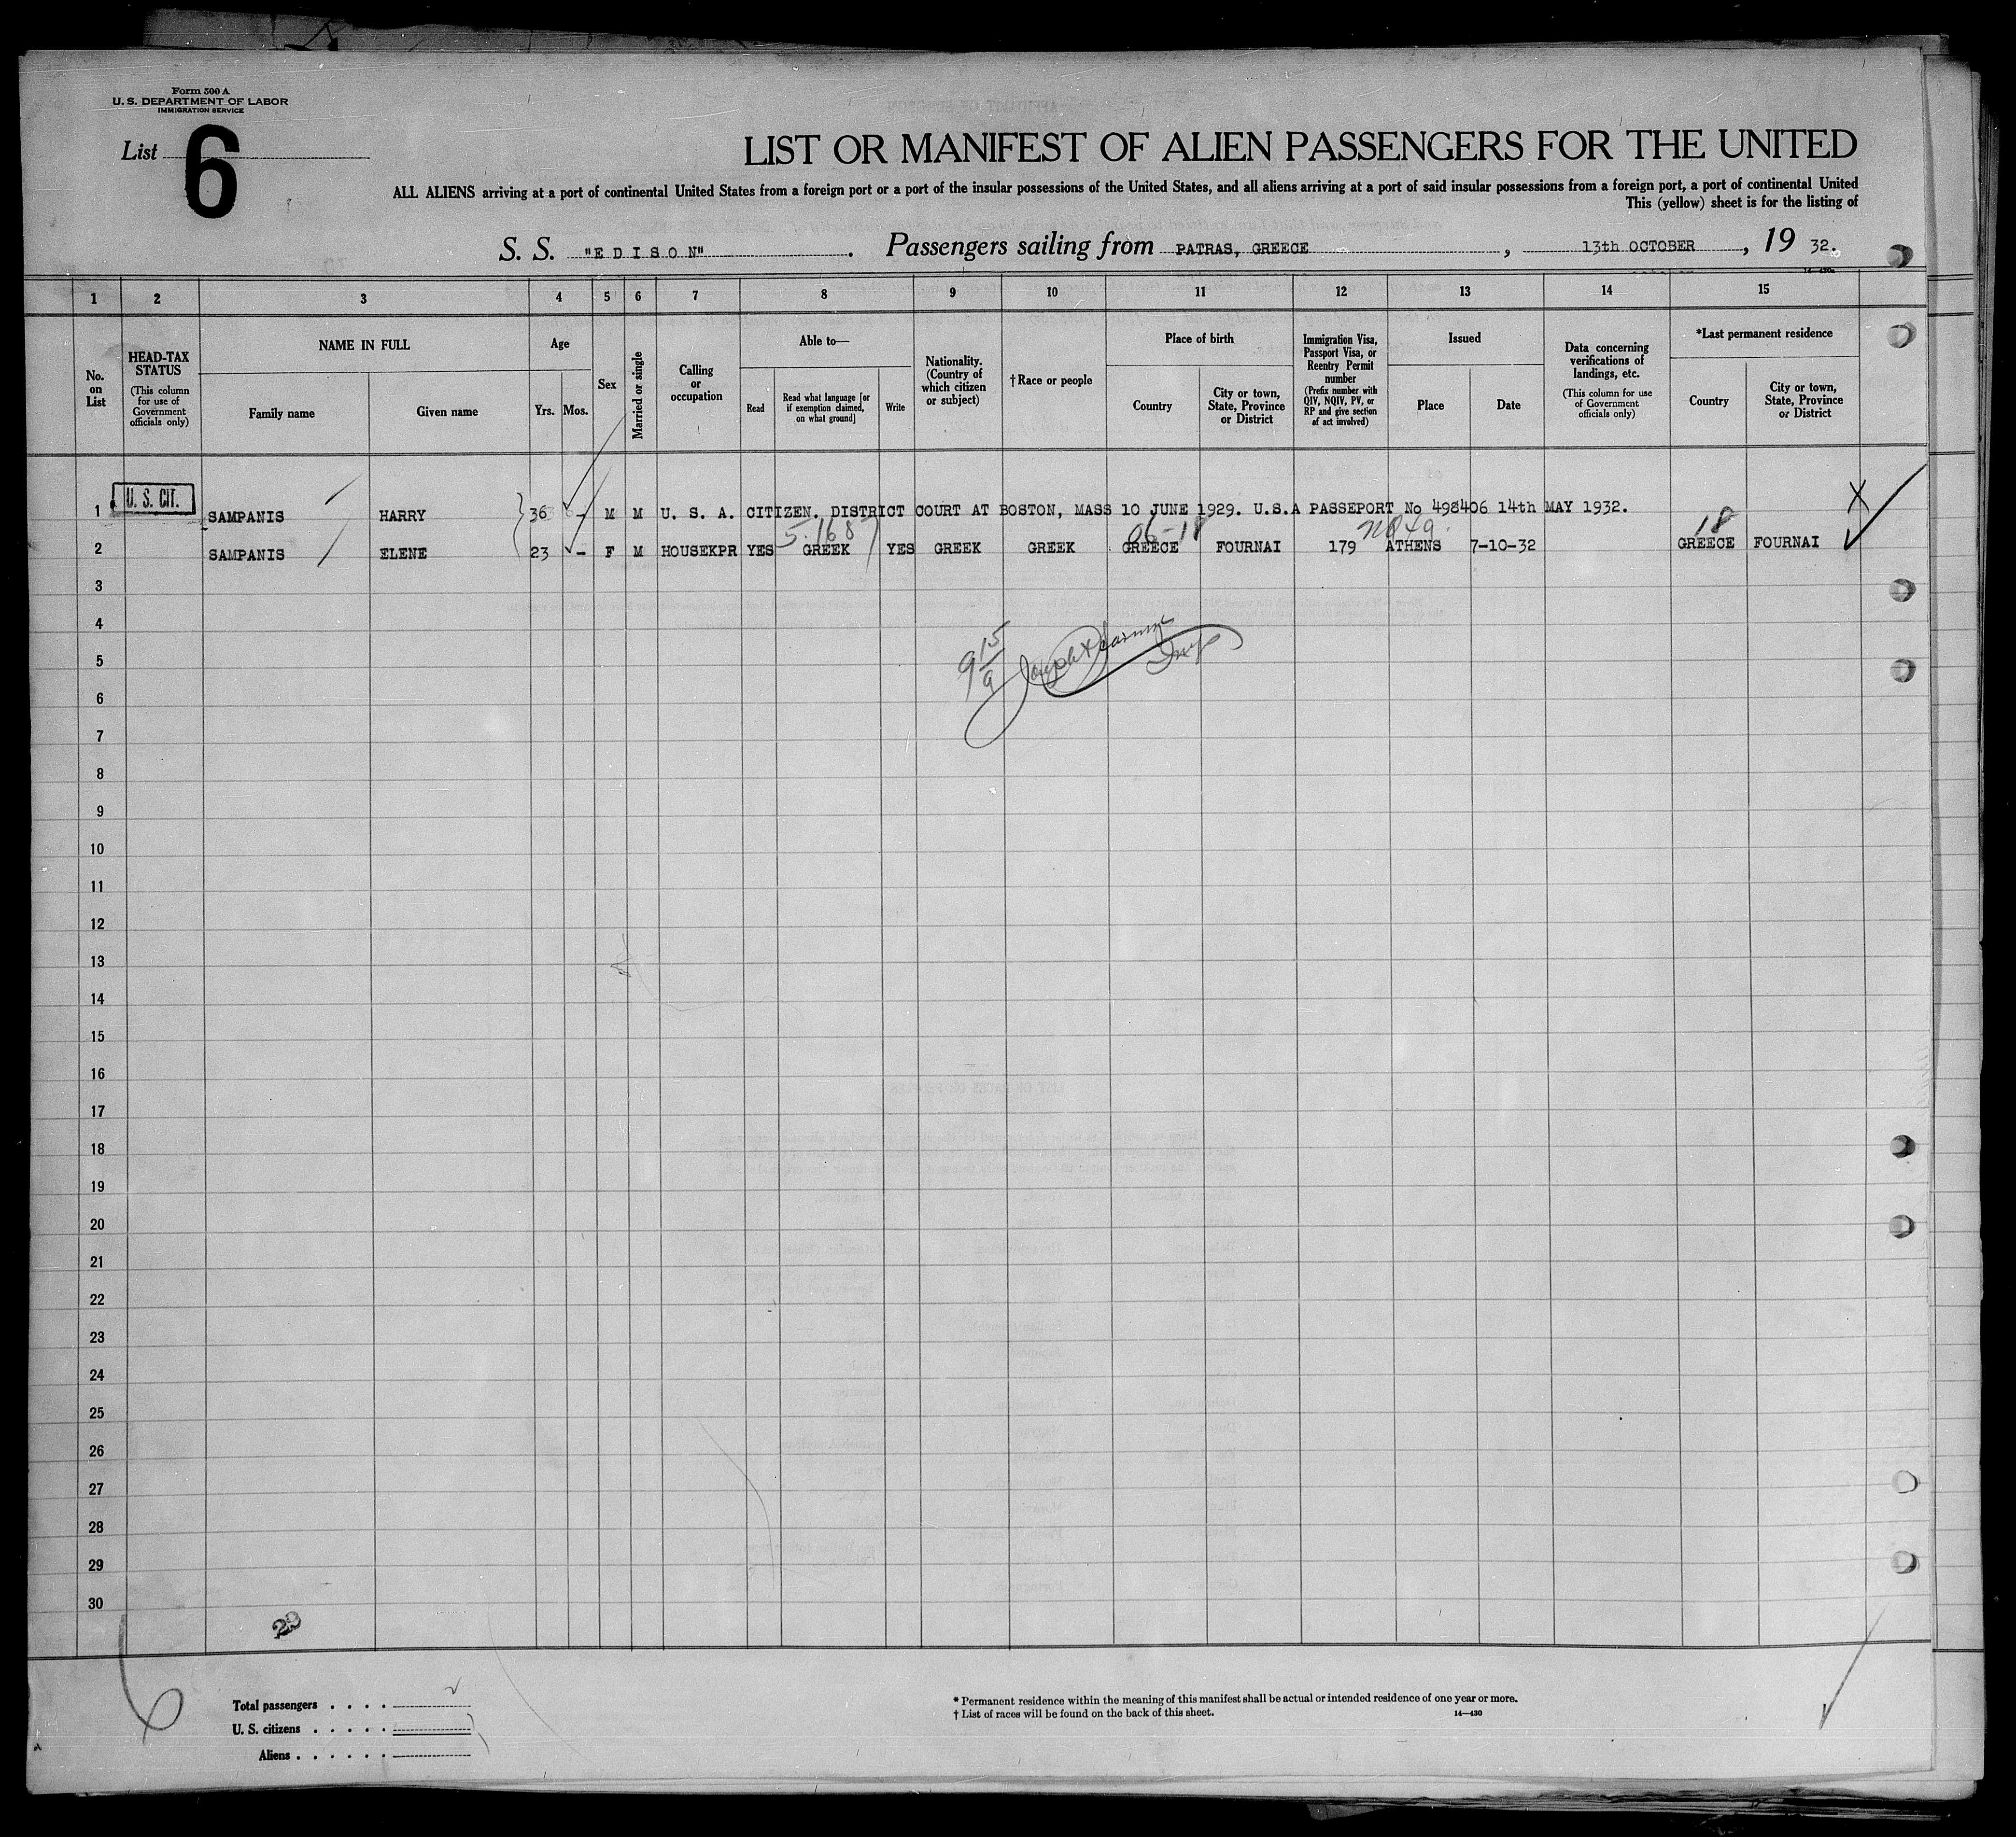 Form 500 A
U. S. DEPARTMENT OF LABOR
IMMIGRATION SERVICE
List 6
LIST OR MANIFEST OF ALIEN PASSENGERS FOR THE UNITED
ALL ALIENS arriving at a port of continental United States from a foreign port or a port of the insular possessions of the United States, and all aliens arriving at a port of said insular possessions from a foreign port, a port of continental United
This (yellow) sheet is for the listing of
S. S. "EDISON". Passengers sailing from PATRAS, GREECE, 13th OCTOBER, 19 32.
1 2 3 4 5 6 7 8 9 10 11 12 13 14 15
No. on List
HEAD-TAX STATUS
(This column for use of Government officials only)
NAME IN FULL
Family name
Given name
Age
Yrs. Mos.
Sex
Married or single
Calling or occupation
Able to—
Read
Read what language [or if exemption claimed, on what ground]
Write
Nationality. (Country of which citizen or subject)
†Race or people
Place of birth
Country
City or town, State, Province or District
Immigration Visa, Passport Visa, or Reentry Permit number
(Prefix number with QIV, NQIV, PV, or RP and give section of act involved)
Issued
Place
Date
Data concerning verifications of landings, etc.
(This column for use of Government officials only)
*Last permanent residence
Country
City or town, State, Province or District
1 U. S. CIT. SAMPANIS HARRY 36 - M M U. S. A. CITIZEN. DISTRICT COURT AT BOSTON, MASS 10 JUNE 1929. U.S.A PASSEPORT No 498406 14th MAY 1932. X
5.1687 06-18 18
2 SAMPANIS ELENE 23 - F M HOUSEKPR YES GREEK YES GREEK GREEK GREECE FOURNAI 179 ATHENS 7-10-32 GREECE FOURNAI
3
4
5
6
7
8
9
10
11
12
13
14
15
16
17
18
19
20
21
22
23
24
25
26
27
28
29
30
29
Total passengers . . . .
U. S. citizens . . . . .
Aliens . . . . . .
* Permanent residence within the meaning of this manifest shall be actual or intended residence of one year or more.
† List of races will be found on the back of this sheet. 14—430